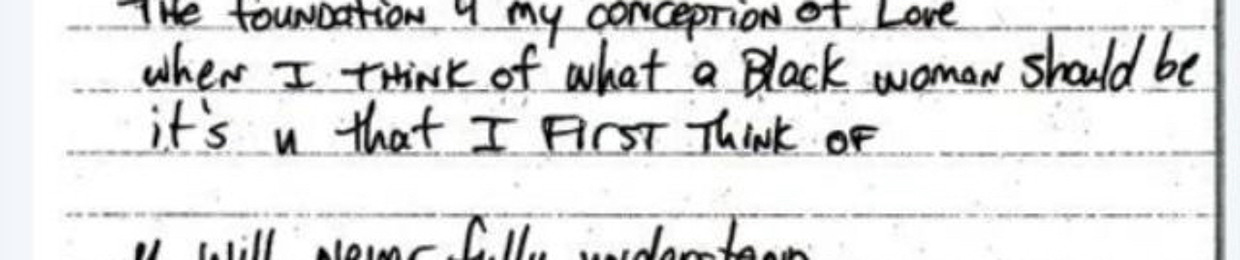 The foundation 4 my conception of Love
when I THINK of what a Black woman should be
it's u that I FIRST Think OF
u will never fully understand